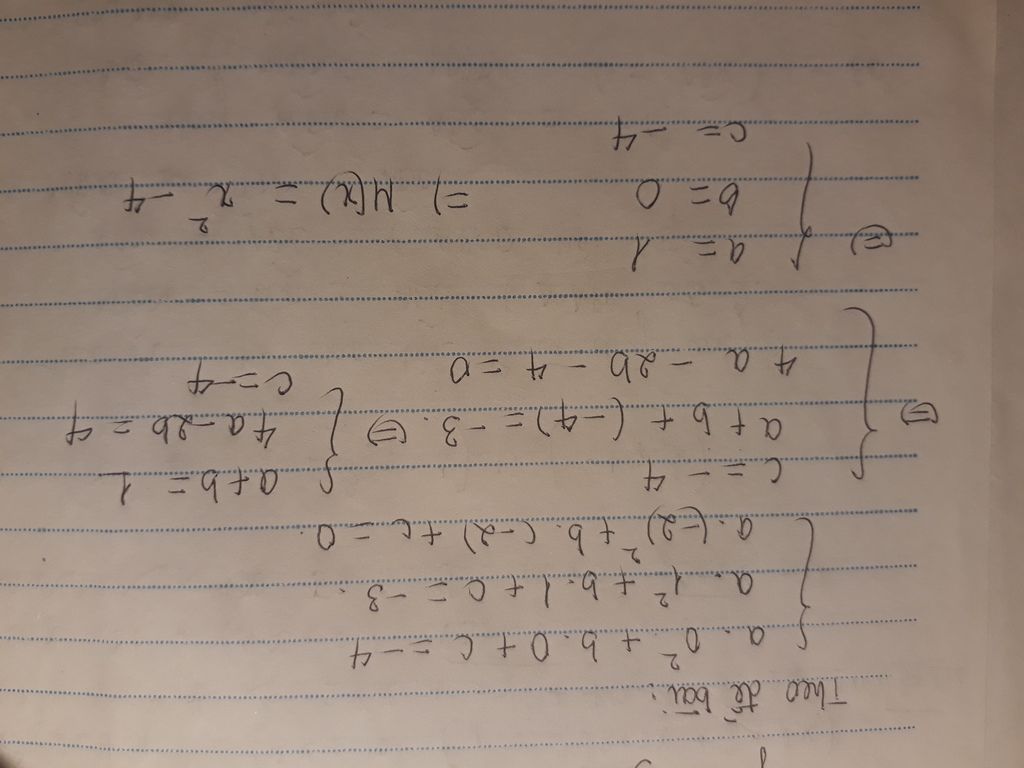 Theo đề bài:
{ a . 0² + b . 0 + c = -4
a . 1² + b . 1 + c = -3 .
a . (-2)² + b . (-2) + c = 0 .
⇔ { c = -4 { a + b = 1
a + b + (-4) = -3 . ⇔ 4a - 2b = 4
4a - 2b - 4 = 0 c = -4
⇔ { a = 1
b = 0 => M(x) = x² - 4
c = -4